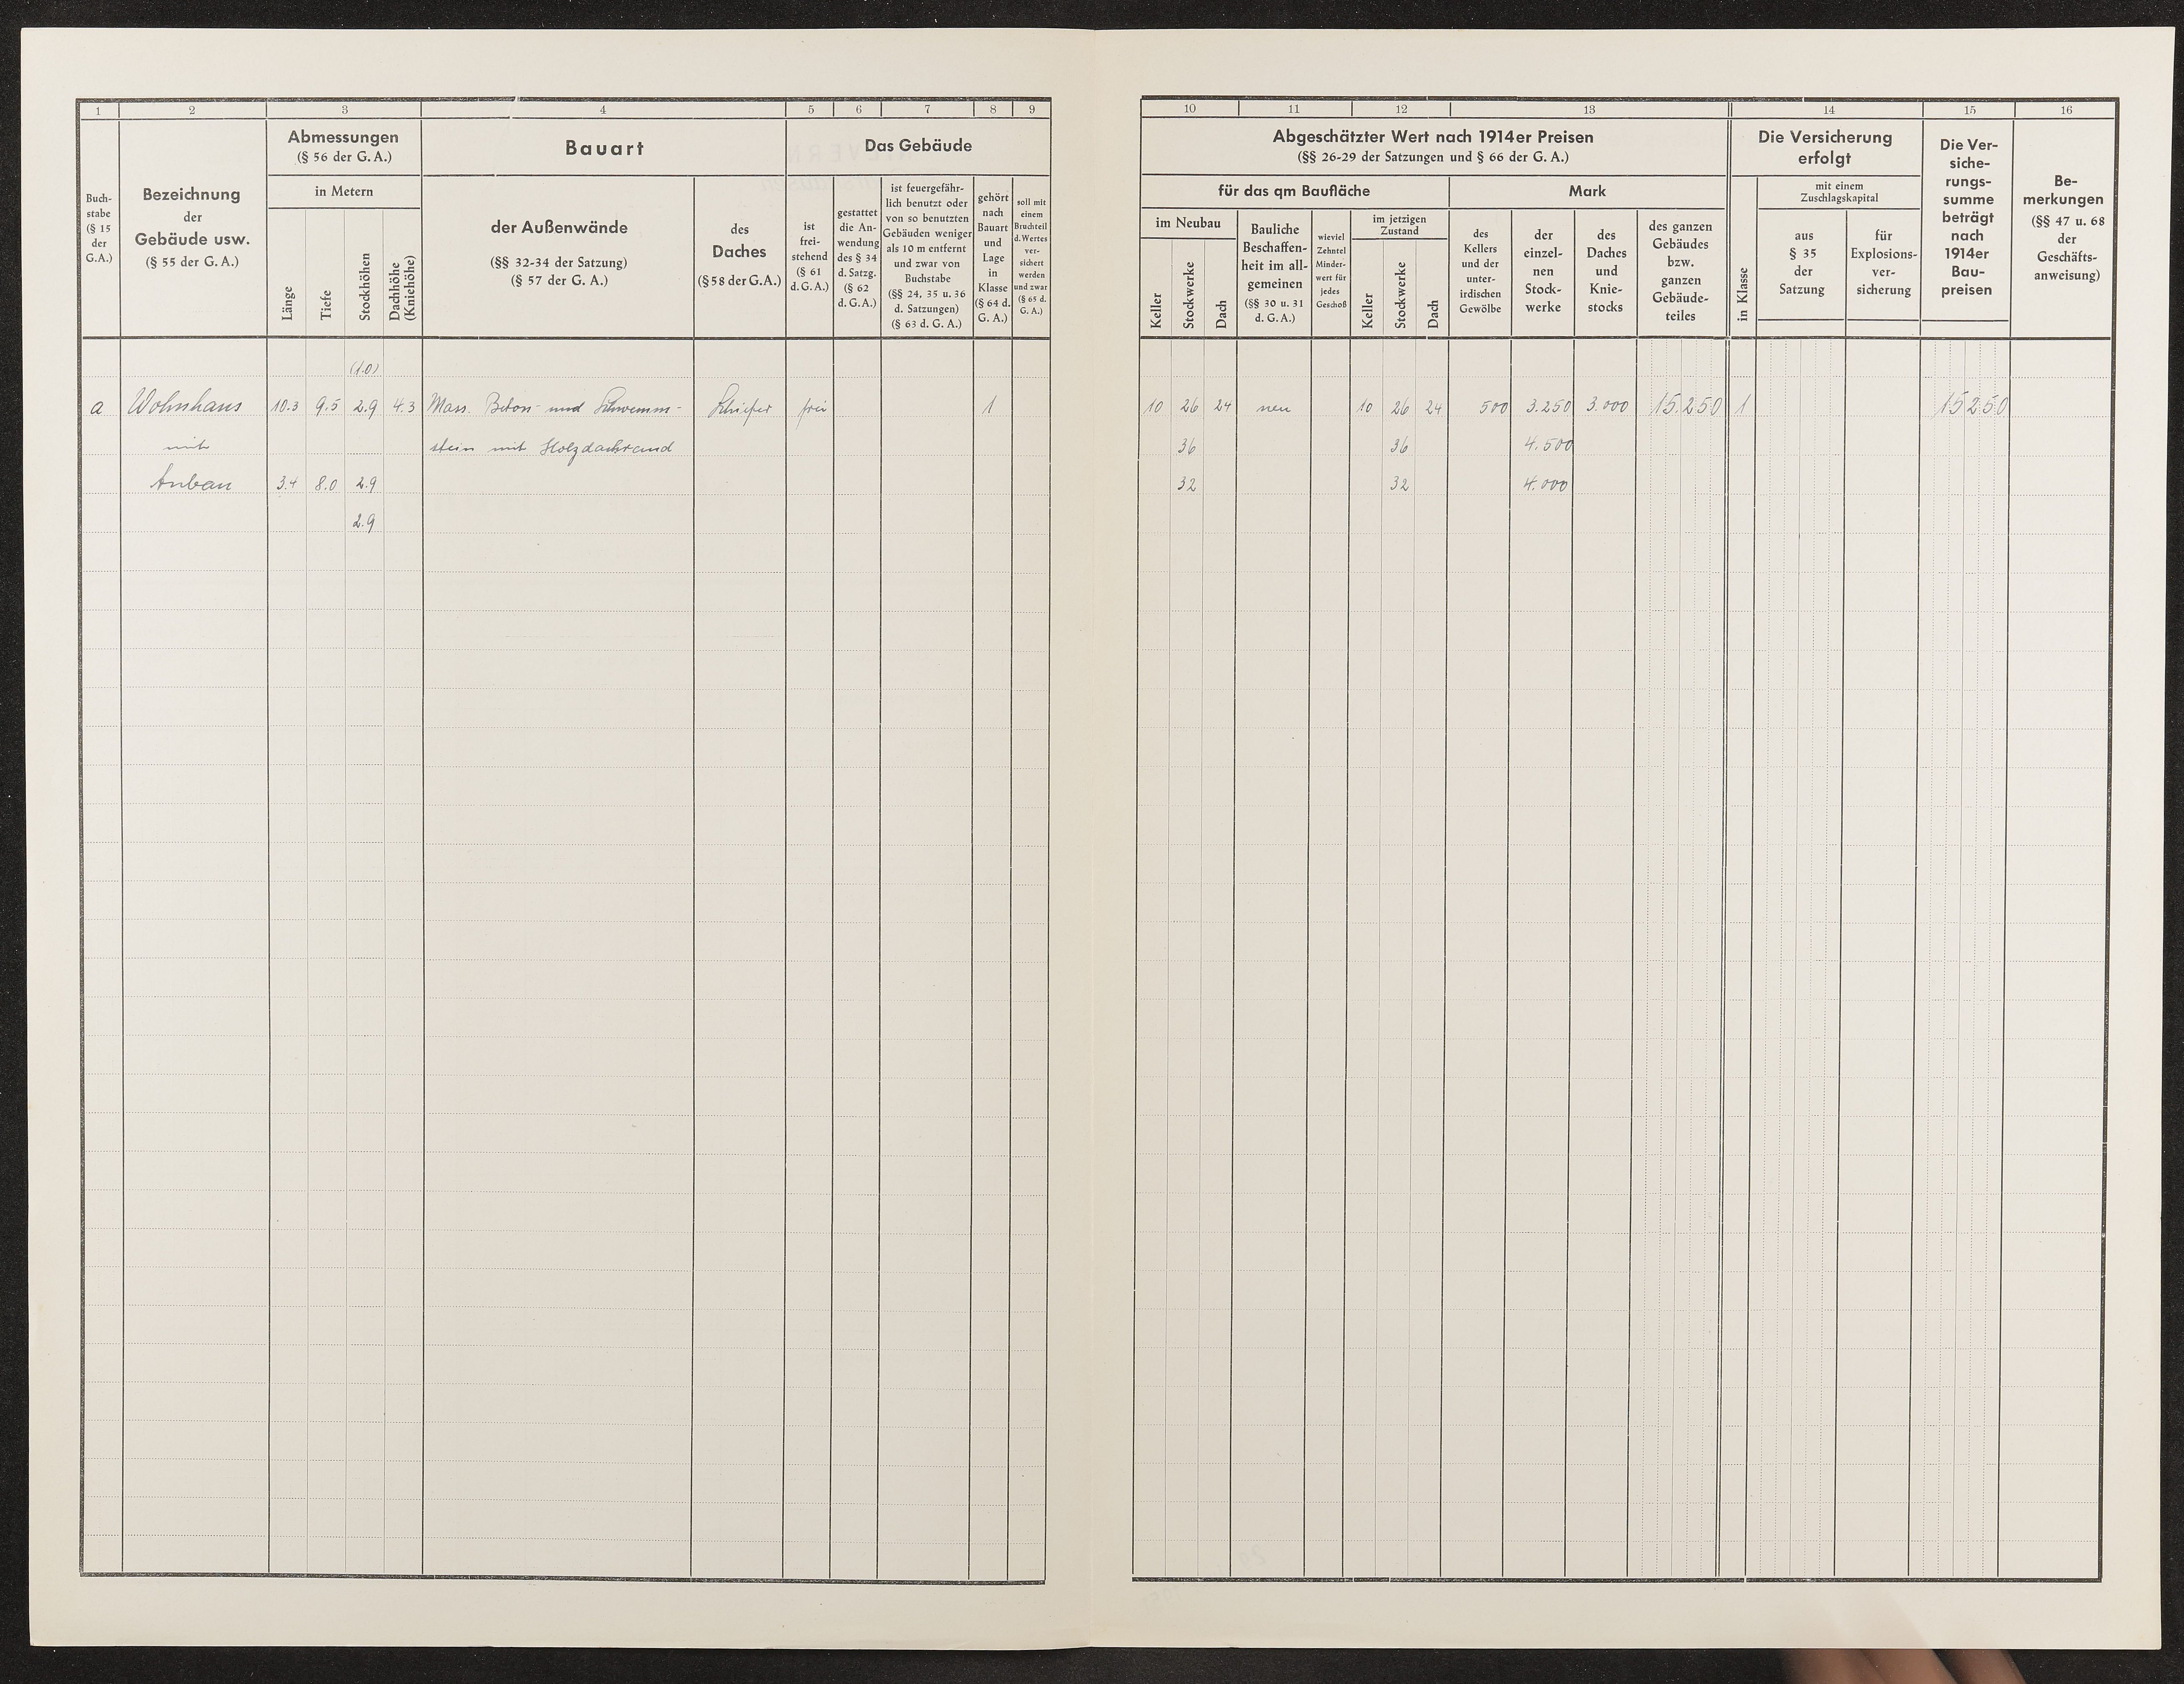 1 2 3 4 5 6 7 8 9
Buch-
stabe
(§ 15
der
G.A.)
Bezeichnung
der
Gebäude usw.
(§ 55 der G. A.)
Abmessungen
(§ 56 der G. A.)
in Metern
Länge
Tiefe
Stockhöhen
Dachhöhe
(Kniehöhe)
Bauart
der Außenwände
(§§ 32-34 der Satzung)
(§ 57 der G. A.)
des
Daches
(§ 58 der G.A.)
Das Gebäude
ist
frei-
stehend
(§ 61
d. G. A.)
gestattet
die An-
wendung
des § 34
d. Satzg.
(§ 62
d. G. A.)
ist feuergefähr-
lich benutzt oder
von so benutzten
Gebäuden weniger
als 10 m entfernt
und zwar von
Buchstabe
(§§ 24, 35 u. 36
d. Satzungen)
(§ 63 d. G. A.)
gehört
nach
Bauart
und
Lage
in
Klasse
(§ 64 d.
G. A.)
soll mit
einem
Bruchteil
d. Wertes
ver-
sichert
werden
und zwar
(§ 65 d.
G. A.)
(1.0)
a Wohnhaus 10.3 9.5 2.9 4.3 Mass. Beton- und Schwemm- Schiefer frei 1
mit stein mit Holzdachrand
Anbau 3.4 8.0 2.9
2.9
10 11 12 13 14 15 16
Abgeschätzter Wert nach 1914er Preisen
(§§ 26-29 der Satzungen und § 66 der G. A.)
für das qm Baufläche
Mark
im Neubau
Keller
Stockwerke
Dach
Bauliche
Beschaffen-
heit im all-
gemeinen
(§§ 30 u. 31
d. G. A.)
wieviel
Zehntel
Minder-
wert für
jedes
Geschoß
im jetzigen
Zustand
Keller
Stockwerke
Dach
des
Kellers
und der
unter-
irdischen
Gewölbe
der
einzel-
nen
Stock-
werke
des
Daches
und
Knie-
stocks
des ganzen
Gebäudes
bzw.
ganzen
Gebäude-
teiles
Die Versicherung
erfolgt
in Klasse
mit einem
Zuschlagskapital
aus
§ 35
der
Satzung
für
Explosions-
ver-
sicherung
Die Ver-
siche-
rungs-
summe
beträgt
nach
1914er
Bau-
preisen
Be-
merkungen
(§§ 47 u. 68
der
Geschäfts-
anweisung)
10 26 24 neu 10 26 24 500 3.250 3.000 15.250 1 15250
36 36 4.500
32 32 4.000